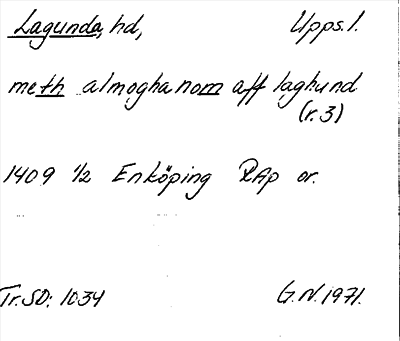 Lagunda, hd, Upps.l.
meth almoghanom aff laghund
(r. 3)
1409 1/2 Enköping RAp or.
Tr. SD: 1034 G.N. 1971.